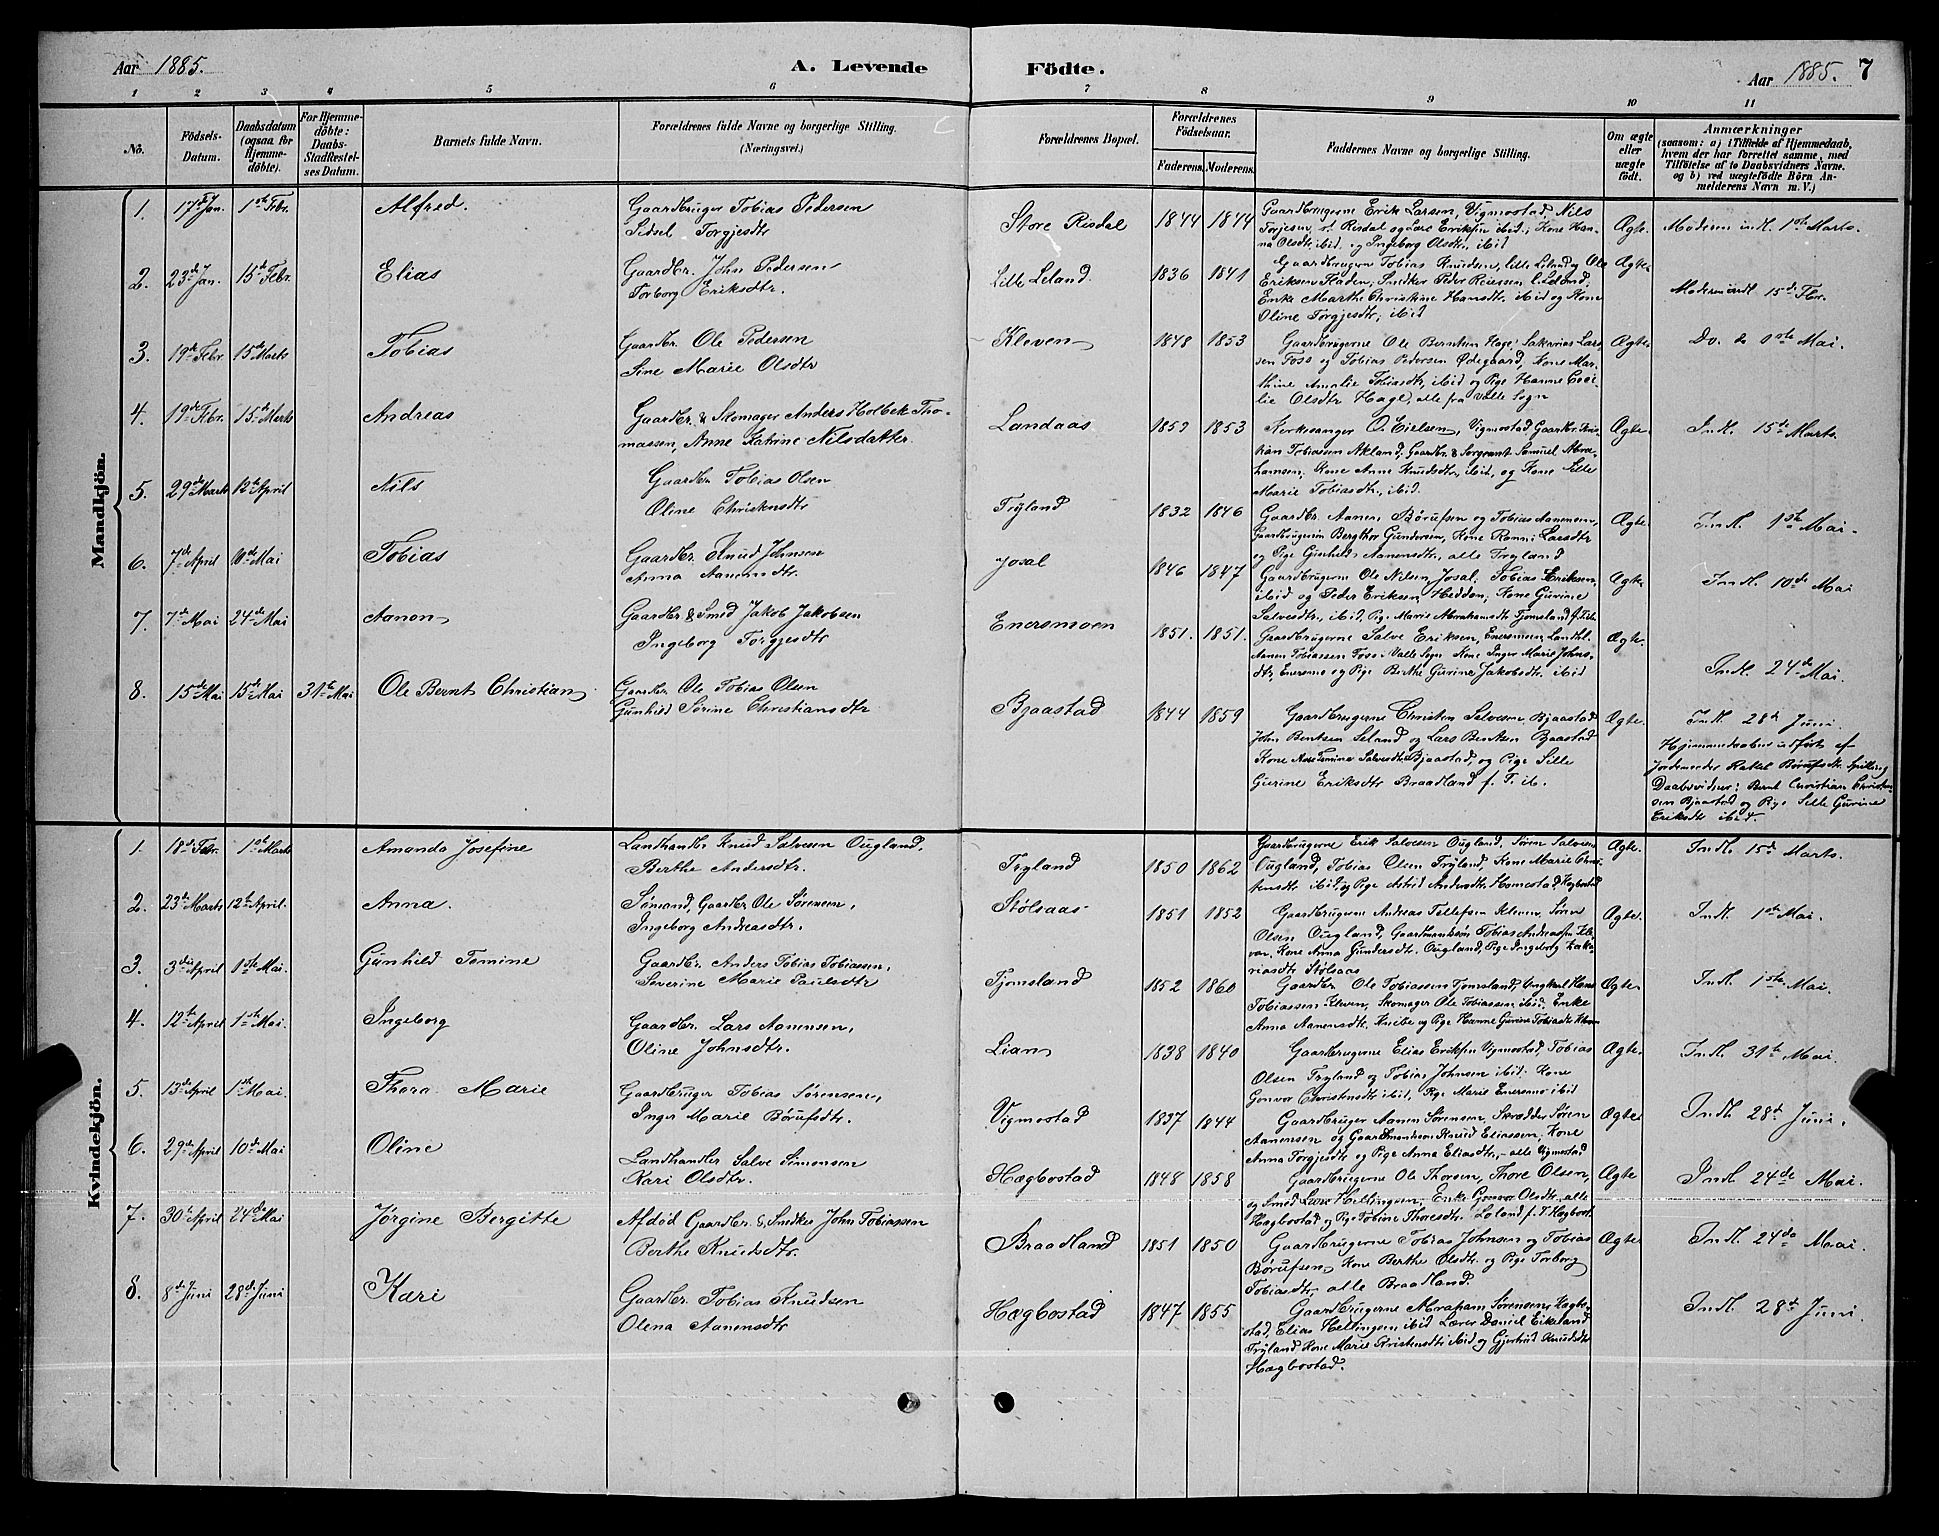 Aar 1885.
A. Levende Födte.
Aar 1885. 7
1 2 3 4 5 6 7 8 9 10 11
No.
Födsels-Datum.
Daabsdatum (ogsaa for Hjemme-döbte).
For Hjemme-döbte: Daabs-Stadfæstel-ses Datum.
Barnets fulde Navn.
Forældrenes fulde Navne og borgerlige Stilling. (Næringsvei.)
Forældrenes Bopæl.
Forældrenes Födselsaar.
Faderens. Moderens.
Faddernes Navne og borgerlige Stilling.
Om ægte eller uægte födt.
Anmærkninger
(saasom: a) i Tilfælde af Hjemmedaab, hvem der har forrettet samme, med Tilföielse af to Daabsvidners Navne, og b) ved uægtefödte Börn An-melderens Navn m. V.)
Mandkjön.
1. 17de Jan. 1ste Febr. Alfred. Gaardbruger Tobias Pedersen
Sidsel Torgjesdtr
Store Risdal 1844 1844 Gaardbrugerne Erik Larsen, Vigmostad, Nils
Torjesen, st. Risdal og Lars Eriksen ibid; Kone Han-
na Olsdtr ibid. og Ingeborg Olsdtr, ibid
Ægte. Moderen indl. 1ste Marts.
2. 23de Jan. 15de Febr. Elias Gaardbr. John Pedersen
Torborg Eriksdtr.
Lille Leland 1836 1841 Gaardbrugerne Tobias Knudsen, lille Leland, Ole
Eriksen Haaden; Snedker Peder Reiersen l. Leland;
Enke Marthe Christine Hansdtr ibid og Kone
Oline Torgjesdtr, ibid
Ægte. Moderen indl 15de Fbr.
3. 19de Febr 15de Marts Tobias Gaardbr. Ole Pedersen
Sine Marie Olsdtr
Kleven 1848 1853 Gaardbrugerne Ole Berntsen Hage, Sakarias Lar-
sen Foss og Tobias Pedersen Ødegaard, Kone Mar-
thine Amalie Tobiasdtr, ibid og Pige Hanne Ceci-
lie Olsdtr Hage, alle fra Valle Sogn
Ægte. Do. d. 1ste Mai.
4. 19de Febr. 15de Marts Andreas Gaardbr. & Skomager Anders Holbek Tho-
massen, Anne Katrine Nilsdatter.
Landaas 1852 1853 Kirkesanger O. Eielsen, Vigmostad Gaardbr. Kris-
tian Tobiassen Akland, Gaardbr. & Sergeant Samuel Abra-
hamsen, Kone Anne Knudsdtr, ibid, og Kone Sille
Marie Tobiasdtr., ibid.
Ægte. Indl. 15de Marts.
5. 29de Marts 12te April Nils Gaardbr Tobias Olsen
Oline Christensdtr
Tryland 1832 1846 Gaardbr. Aanen Börufsen og Tobias Aanensen,
Gaardbrugeren Bergthor Gundersen, Kone Larsdtr
og Pige Gunhild Aanensdtr., alle Tryland
Ægte. Indl. 1ste Mai.
6. 7de April 10de Mai Tobias Gaardbr. Knud Johnsen
Anna Aanensdtr.
Josal 1846 1847 Gaardbrugerne Ole Nilsen Josal, Tobias Eriksen,
ibid og Peder Eriksen Hedden; Kone Gurine
Salvesdtr, ibid, Pige Marie Abrahamsdtr Tjomsland
Ægte. Indl. 10de Mai
7. 7de Mai 24de Mai Aanon Gaardbr & Smed Jakob Jakobsen
Ingeborg Torgjesdtr
Enersmoen 1851. 1851. Gaardbrugerne Salve Eriksen, Enersmoen, Landhl.
Aanen Tobiassen Foss, Valle Sogn Kone Inger Marie Johns-
dtr, Enersmo og Pige Berthe Gurine Jakobsdtr. ibid
Ægte. Indl. 24de Mai.
8. 15de Mai 15de Mai 31te Mai Ole Bernt Christian Gaardbr. Ole Tobias Olsen
Gunhild Sörine Christiansdtr
Bjaastad 1844 1859 Gaardbrugerne Christen Salvesen, Bjaastad
John Bentsen Leland og Lars Bentsen Bjaastad
Kone Ane Temine Salvesdtr. Bjaastad, og Pige Sille
Gurine Eriksdtr Braadland f. T. ib.
Ægte. Indl. 28de Juni
Hjemmedaaben udført af
Jordemoder Rakel Börufsdtr. Spilling
Daabsvidner: Bernt Christian Christen-
sen Bjaastad og Pige Sille Gurine
Eriksdtr ibid.
Kvindekjön.
1. 18de Febr. 1ste Marts Amanda Josefine Landhandler Knud Salvesen Ougland,
Berthe Andersdtr.
Tryland 1850 1862 Gaardbrugerne Erik Salvesen Ougland, Sören Salvesen
Ougland, Tobias Olsen Tryland, Kone Marie Chris-
tensdtr ibid og Pige Astrid Andersdtr. Homestad, Hægbostad
Ægte. Indl. 15de Marts.
2. 23de Marts 12te April. Anna. Sömand, Gaardbr Ole Sörensen,
Ingeborg Andreasdtr.
Stölsaas 1851 1852 Gaardbrugerne Andreas Tellefsen Kleven, Sören
Olsen Ougland, Gaardmandssön Tobias Andreassen Kle-
ven, Kone Anna Gundersdtr. Ougland, Pige Ingeborg Zaka-
riasdtr Stölsaas
Ægte. Indl. 1ste Mai.
3. 3die April 1ste Mai. Gunhild Tomine Gaardbr. Anders Tobias Tobiassen,
Severine Marie Paulsdtr
Tjomsland 1852 1860 Gaardbr Ole Tobiassen Tjomsland, Ungkarl Hans
Tobiassen Kleven, Skomager Ole Tobiassen, ibid, Enke
Anna Aanensdtr, Knibe og Pige Hanne Gurine Tobiasdtr Kleven
Ægte. Indl. 1ste Mai.
4. 12te April 1ste Mai. Ingeborg Gaardbr. Lars Aanensen,
Oline Johnsdtr.
Lian 1838 1840 Gaardbrugerne Elias Eriksen Vigmostad, Tobias
Olsen Tryland og Tobias Johnsen ibid. Kone
Gonvor Christensdtr ibid, Pige Marie Enersmo ibid
Ægte. Indl. 31te Mai.
5. 13de April 1ste Mai. Thora Marie Gaardbruger Tobias Sörensen,
Inger Marie Börufsdtr.
Vigmostad 1837 1844 Gaardbruger Aanen Sörensen, Skrædder Sören
Aanensen og Gaardmandssön Knud Eliassen, Kone
Anna Torgjesdtr og Pige Anna Eliasdtr, - alle Vigmostad
Ægte Indl. 28de Juni.
6. 29de April 10de Mai Oline Landhandler Salve Simonsen
Kari Olsdtr.
Hægbostad 1848 1858 Gaardbrugerne Ole Thorsen, Thore Olsen,
og Smed Lars Heltingsen; Enke Gonvor Olsdtr. alle
Hægbostad og Pige Tobine Thoresdtr. Leland f. T. Hægbost.
Ægte Indl. 24de Mai.
7. 30te April 24de Mai Jörgine Bergitte Afdöd Gaardbr. & Snedker John Tobiassen
Berthe Knudsdtr.
Braadland 1851 1850 Gaardbrugerne Tobias Johnsen og Tobias
Börufsen, Kone Berthe Olsdtr. og Pige Torborg
Tobiasdtr, alle Braadland.
Ægte Indl. 24de Mai.
8. 8de Juni 28de Juni Kari Gaardbr. Tobias Knudsen
Olena Aanensdtr
Hægbostad 1847 1855 Gaardbrugerne Abraham Sörensen, Hægbo-
stad, Elias Heltingsen ibid Lærer Daniel Eikeland
Tryland, Kone Marie Kristensdtr ibid og Gjertrud Knudsdtr
Hægbostad.
Indl. 28de Juni.